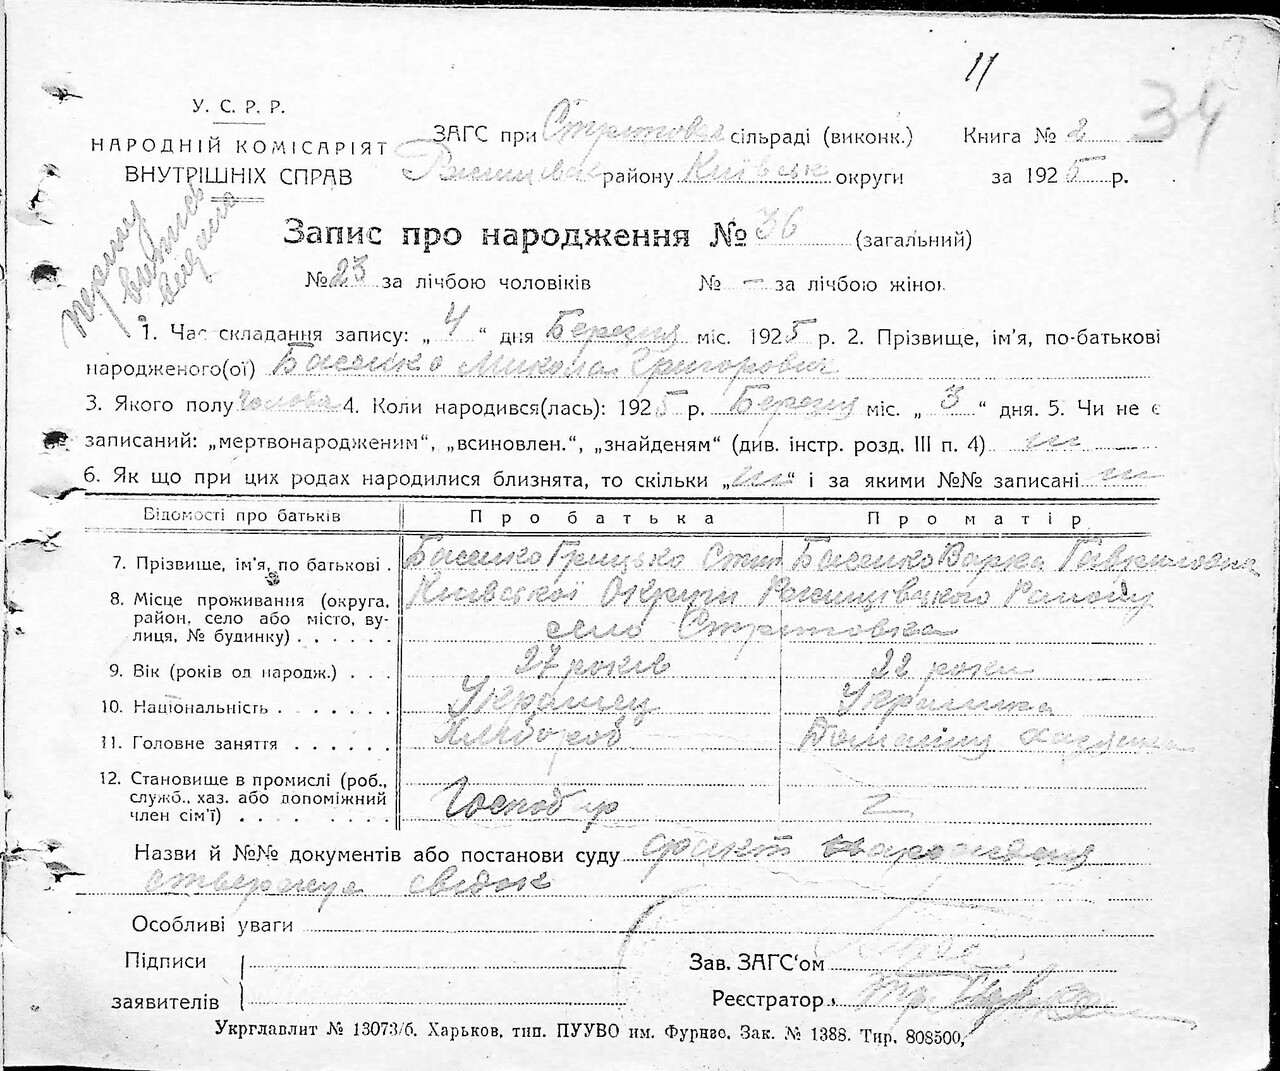 11
34
У. С. Р. Р.
НАРОДНІЙ КОМІСАРІЯТ
ВНУТРІШНІХ СПРАВ
ЗАГС при сільраді (виконк.)
району Київськ округи
Книга № 2
за 1925 р.
першу
випись
видано
Запис про народження № 36 (загальний)
№ 23 за лічбою чоловіків № — за лічбою жінок
1. Час складання запису: „ 4 “ дня Березня міс. 1925 р. 2. Прізвище, ім'я, по-батькові
народженого(ої) Микола Григорович
3. Якого полу 4. Коли народився(лась): 1925 р. Березня міс. „ 3 “ дня. 5. Чи не є
записаний: „мертвонародженим“, „всиновлен.“, „знайденям“ (див. інстр. розд. III п. 4)
6. Як що при цих родах народилися близнята, то скільки „ “ і за якими №№ записані
Відомості про батьків Про батька Про матір
7. Прізвище, ім'я, по батькові . Грицько Варка Гавриловна
8. Місце проживання (округа, район, село або місто, вулиця, № будинку) Київської Округи Району
село
9. Вік (років од народж.) . . . 27 років 22 роки
10. Національність . . . . . . . Українец Українка
11. Головне заняття . . . . . . Хлібороб Домашня
12. Становище в промислі (роб.,
служб., хаз. або допоміжний
член сім'ї) . . . . . . . . Господар
Назви й №№ документів або постанови суду факт народження
Особливі уваги
Підписи
заявителів
Зав. ЗАГС'ом
Реєстратор
Укрглавлит № 13073/б. Харьков, тип. ПУУВО им. Фурнзе. Зак. № 1388. Тир. 808500,